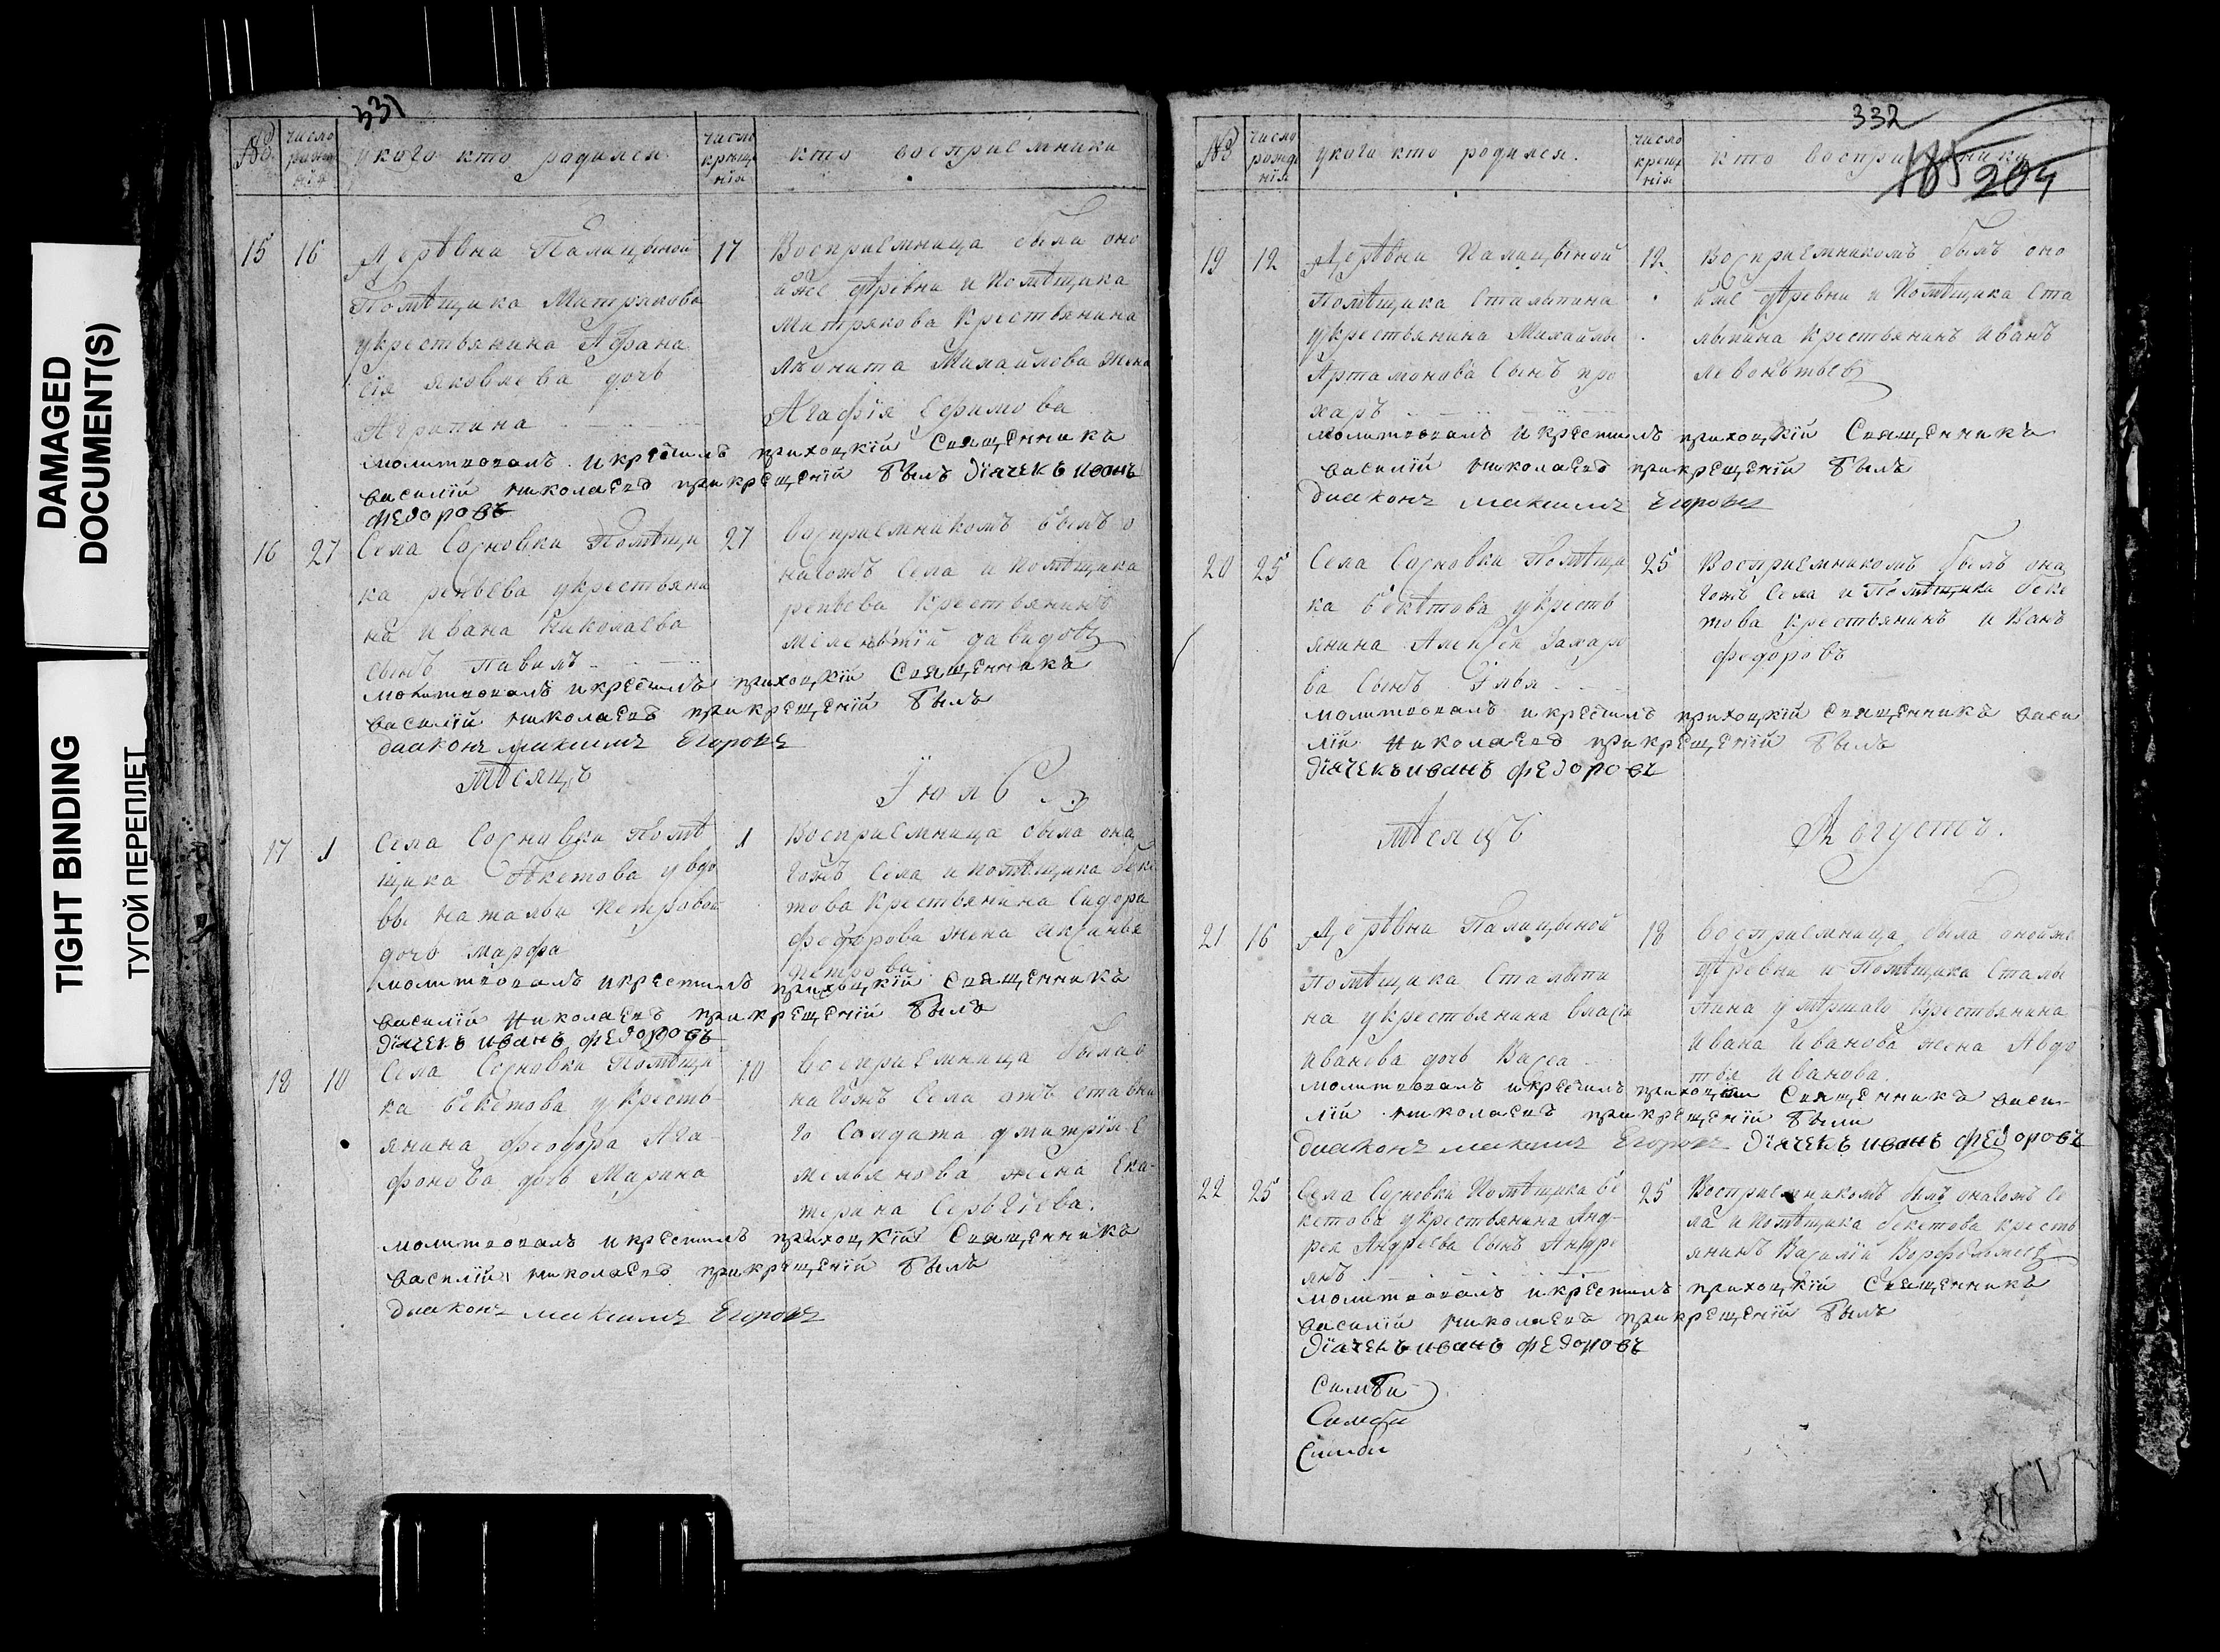 DAMAGED
DOCUMENT(S)
TIGHT BINDING
ТУГОЙ ПЕРЕПЛЕТ
331
№
число рожде нія
у кого кто родился
число крещ нія
кто восприемники
15 16
Дерѣвни Палицыной
Помѣщика Митрякова
укрестьянина Афана
сія яковлева дочь
Агрипина
17
Восприемница была оно
йже дѣревни и Помѣщика
Митрякова Крестьянина
Михайлова жена
Агафія Ефимова
молитвовалъ и крестилъ приходцкій Священникъ
василій николаевъ при крещеніи былъ діячекъ иванъ
федоровъ
16 27
Села Сосновки Помѣщи
ка репьева укрестьяни
на ивана николаева
сынъ павилъ
27
восприемникомъ былъ о
нагожъ Села и Помѣщика
репьева Крестьянинъ
давидовъ
молитвовалъ и крестилъ приходцкій Священникъ
василій николаевъ при крещеніи былъ
диаконъ максимъ Егоровъ
мѣсяцъ
Іюль
17 1
Села Сосновки Помѣ
щика Бекетова у вдо
вы натальи петровой
дочь марфа
1
Восприемница была она
гожъ Села и помѣщика беке
това Крестьянина Сидора
федорова жена аксинья
петрова
молитвовалъ и крестилъ приходцкій Священникъ
василій николаевъ при крещеніи былъ
діячекъ иванъ федоровъ
18 10
Села Сосновки Помѣщи
ка бекетова укресть
янина феодора Ага-
фонова дочь Марина
10
восприемница была о
нагожъ Села отъ ставна
го Солдата дмитрія Е
мельянова жена Ека-
терина Сергѣева.
молитвовалъ и крестилъ приходцкій Священникъ
василій николаевъ при крещеніи былъ
диаконъ максимъ Егоровъ
332
185 204
№
число рожде нія
укого кто родился.
число крещ нія
кто восприемники
19 12
Дерѣвни Палицыной
Помѣщика Сталыпина
укрестьянина Михайлы
Артамонова Сынъ про
харъ
12
Восприемникомъ былъ оно
йже дѣревни и Помѣщика Ста
лыпина Крестьянинъ Иванъ
левонтьевъ
молитвовалъ и крестилъ приходцкій Священникъ
василій николаевъ при крещеніи былъ
диаконъ максимъ Егоровъ
20 25
Села Сосновки Помѣщи
ка бекетова укресть
янина Алексея Захаро
ва Сынъ Илья
25
Восприемникомъ былъ она
гожъ Села и Помѣщика беке
това крестьянинъ иванъ
федоровъ
молитвовалъ и крестилъ приходцкій священникъ васи
лій николаевъ при крещеніи былъ
діячекъ иванъ федоровъ
мѣсяцъ
Августъ.
21 16
Дерѣвни Палицыной
Помѣщика Сталыпи
на укрестьянина власа
иванова дочь Васса
18
восприемница была онойже
дѣревни и Помѣщика Сталы
пина умѣршаго Крестьянина
Ивана Иванова жена Авдо
тья Иванова.
молитвовалъ и крестилъ приходцкій Священникъ васи-
лій николаевъ при крещеніи были
диаконъ максимъ Егоровъ діячекъ иванъ федоровъ
22 25
Села Сосновки Помѣщика бе
кетова укрестьянина Анд-
рея Андреева Сынъ Андре
янъ
25
Восприемникомъ былъ онагожъ Се
ла и Помѣщика бекетова кресть
янинъ Василій
молитвовалъ и крестилъ приходцкій Священникъ
василій николаевъ при крещеніи былъ
діячекъ иванъ федоровъ